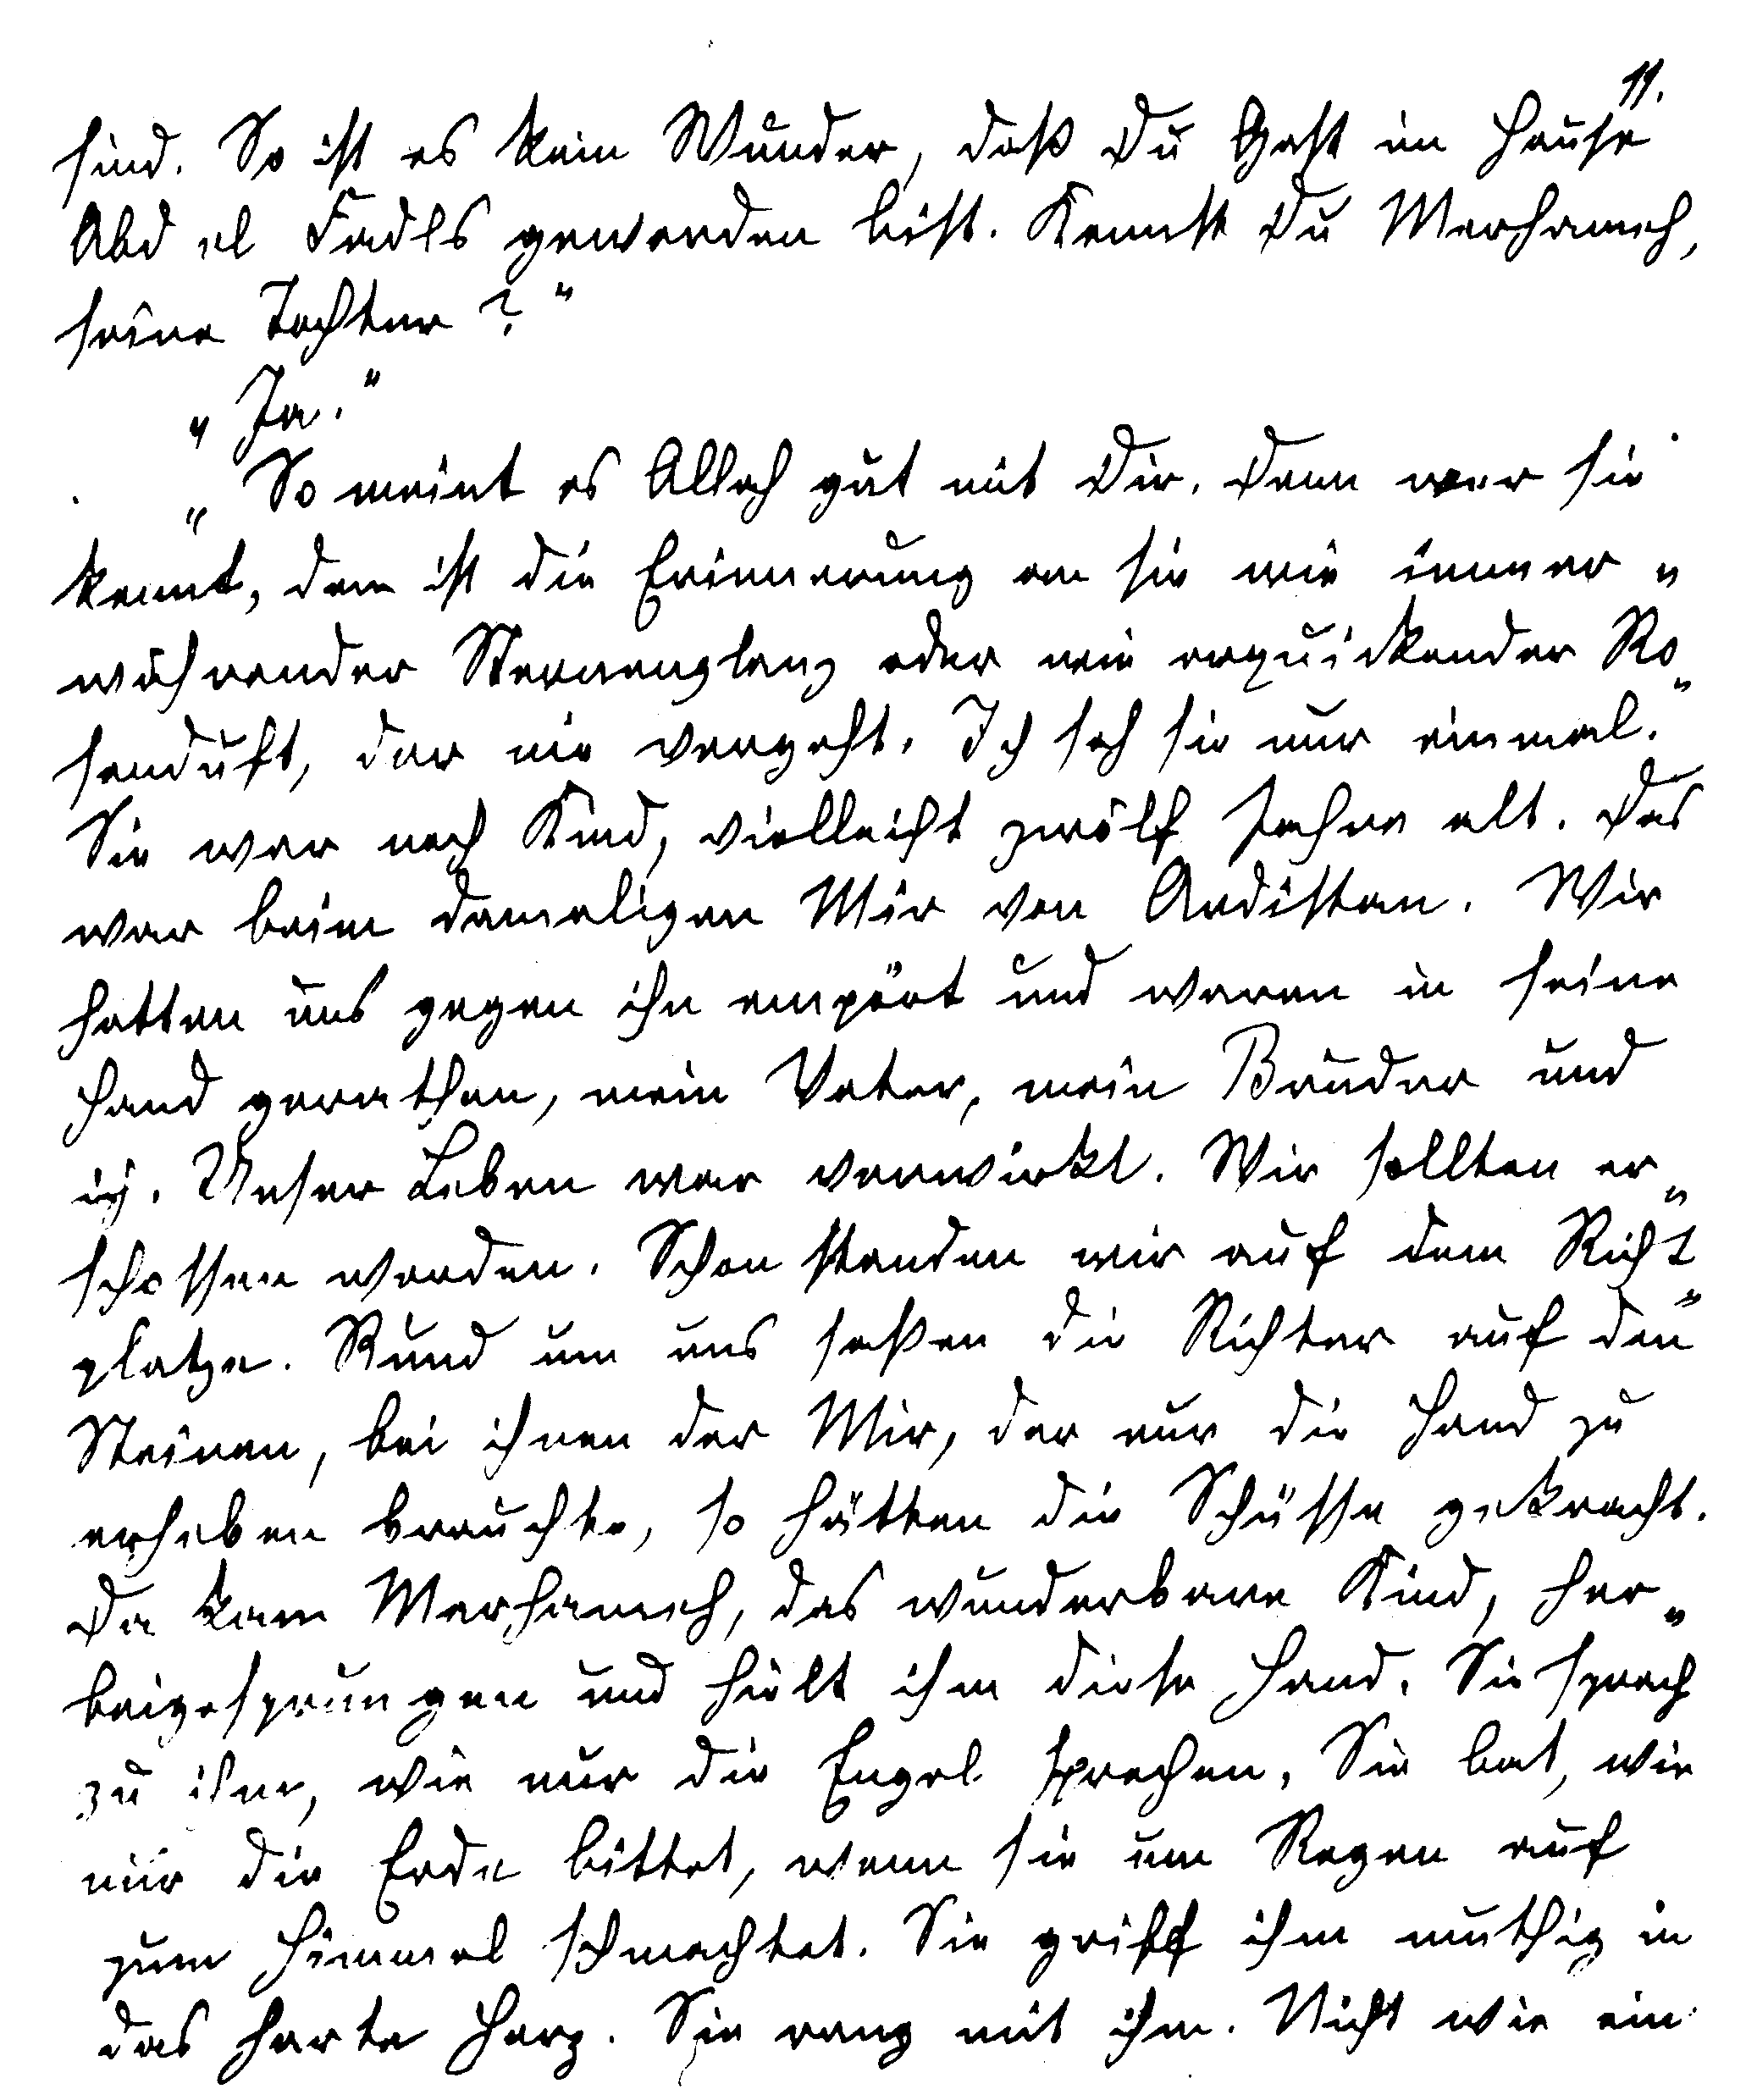 11.
sind. So ist es kein Wunder, daß Du Gast im Hause
Abd el Fadls geworden bist. Kennst Du Merhameh,
seine Tochter?"
„Ja."
„So meint es Allah gut mit Dir. Denn wer sie
kennt, dem ist die Erinnerung an sie wie immer„
währender Sternenglanz oder wie erquickender Ro„
senduft, der nie vergeht. Ich sah sie nur einmal.
Sie war noch Kind, vielleicht zwölf Jahre alt. Das
war beim damaligen Mir von Ardistan. Wir
hatten uns gegen ihn empört und waren in seine
Hand gerathen, mein Vater, mein Bruder und
ich. Unser Leben war verwirkt. Wir sollten er„
schossen werden. Schon standen wir auf dem Richt„
platze. Rund um uns saßen die Richter auf den
Steinen, bei ihnen der Mir, der nur die Hand zu
erheben brauchte, so hätten die Schüsse gekracht.
Da kam Merhameh, das wunderbare Kind, her„
beigesprungen und hielt ihm diese Hand. Sie sprach
zu ihm, wie nur die Engel sprechen. Sie bat, wie
nur die Erde bittet, wenn sie um Regen auf
zum Himmel schmachtet. Sie griff ihm muthig in
das harte Herz. Sie rang mit ihm. Nicht wie ein